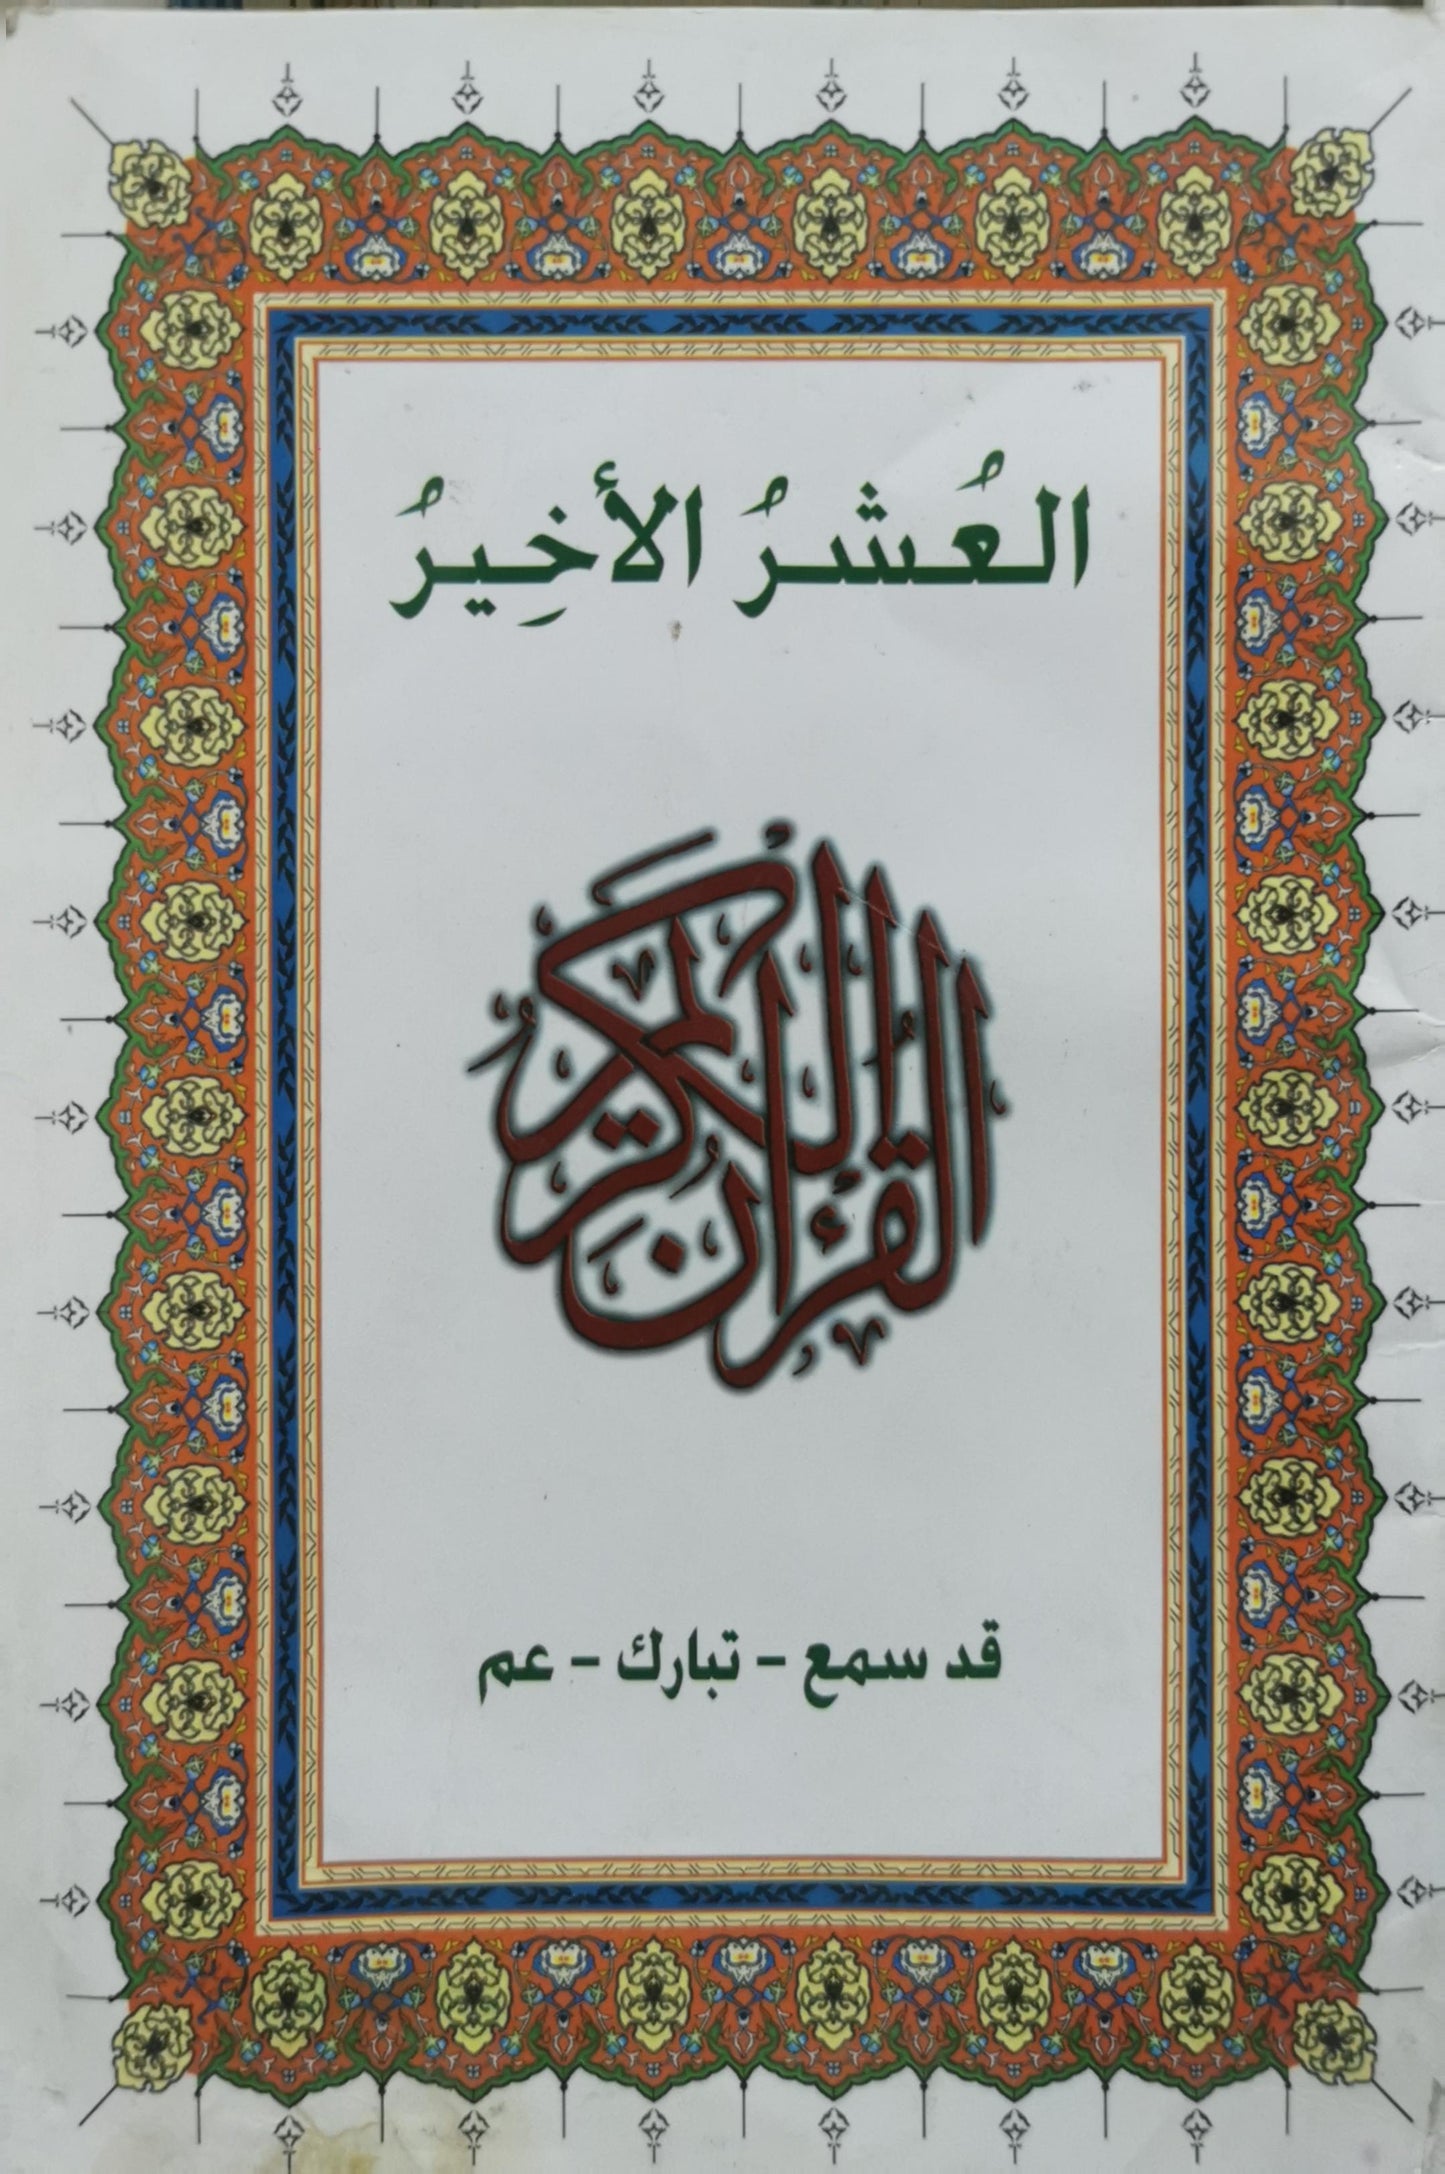 العُشرُ الأخِيرُ
القُرآن الكريم
قد سمع - تبارك - عم